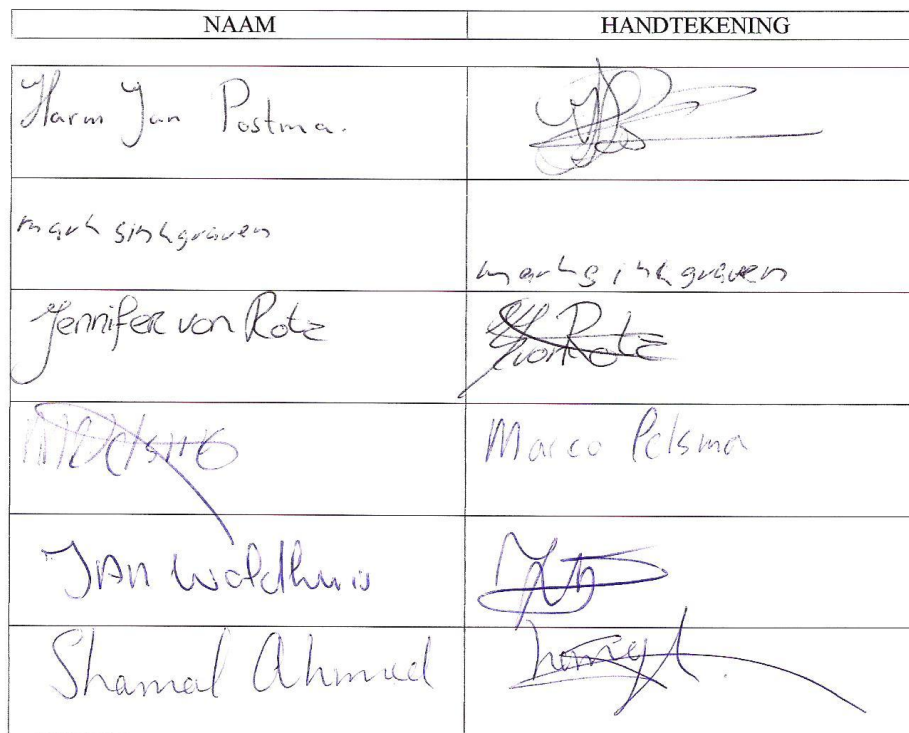 NAAM HANDTEKENING
Harm Jan Postma.
mark sinkgraven
mark sinkgraven
Jennifer von Rotz
JvonRotz
Marco Pelsma
JAN Woldhuis
Shamal Ahmed